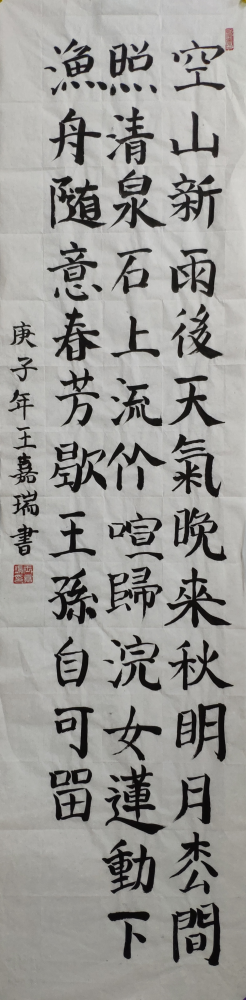 空山新雨後天氣晚来秋明月松間
照清泉石上流竹喧歸浣女蓮動下
漁舟隨意春芳歇王孫自可留
庚子年王嘉瑞書